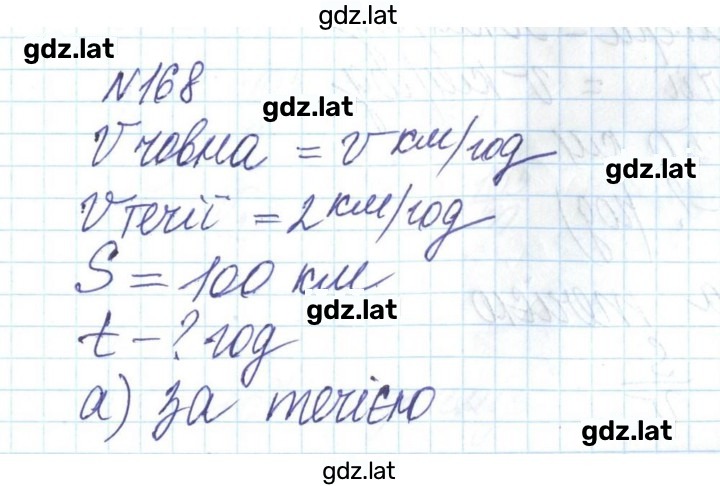 gdz.lat
gdz.lat
№168
gdz.lat
Vчовна = v км/год
gdz.lat
Vтечії = 2 км/год
S = 100 км
gdz.lat
t - ? год
а) за течією
gdz.lat
gdz.lat